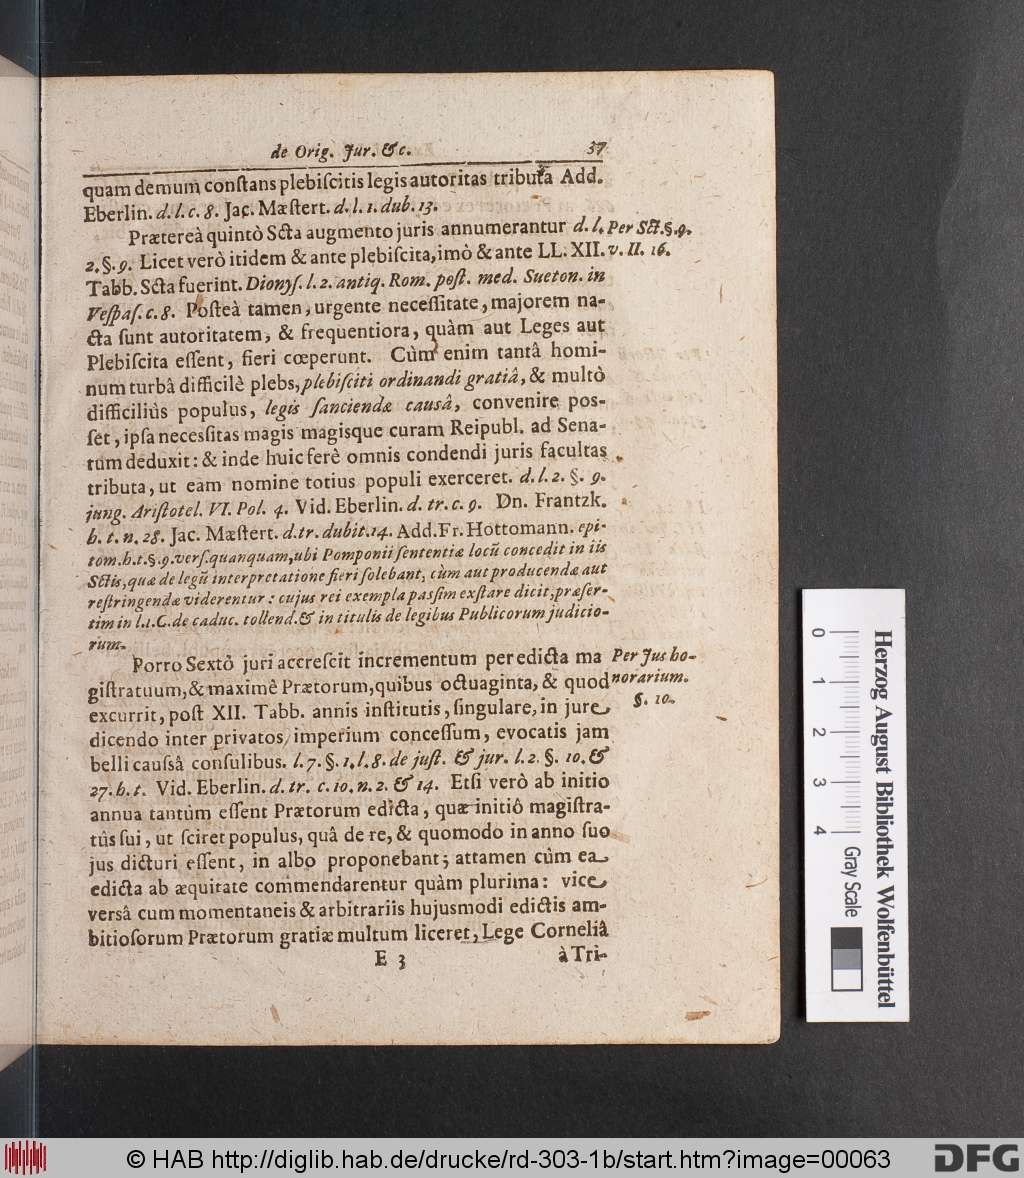 de Orig. Jur. &c. 37
quam demum conſtans plebiſcitis legis autoritas tributa Add.
Eberlin. d. l. c. 8. Jac. Mæſtert. d. l. 1. dub. 13.
Prætereà quintò Scta augmento juris annumerantur d. l.
Per Sct. §. 9.
2. §. 9. Licet verò itidem & ante plebiſcita, imò & ante LL. XII.
v. II. 16.
Tabb. Scta fuerint. Dionyſ. l. 2. antiq. Rom. poſt. med. Sueton. in
Veſpaſ. c. 8. Poſteà tamen, urgente neceſſitate, majorem na-
cta ſunt autoritatem, & frequentiora, quàm aut Leges aut
Plebiſcita eſſent, fieri cœperunt. Cùm enim tantâ homi-
num turbâ difficilè plebs, plebiſciti ordinandi gratiâ, & multò
difficiliùs populus, legis ſanciendæ causâ, convenire poſ-
ſet, ipſa necesſitas magis magisque curam Reipubl. ad Sena-
tum deduxit: & inde huic ferè omnis condendi juris facultas
tributa, ut eam nomine totius populi exerceret. d. l. 2. §. 9.
jung. Ariſtotel. VI. Pol. 4. Vid. Eberlin. d. tr. c. 9. Dn. Frantzk.
h. t. n. 28. Jac. Mæſtert. d. tr. dubit. 14. Add. Fr. Hottomann. epi-
tom. h. t. §. 9. verſ. quanquam, ubi Pomponii ſententiæ locū concedit in iis
Sctis, quæ de legū interpretatione fieri ſolebant, cùm aut producendæ aut
reſtringendæ viderentur: cujus rei exempla paſſim exſtare dicit, præſer-
tim in l. 1. C. de caduc. tollend. & in titulis de legibus Publicorum judicio-
rum.
Porro Sextò juri accreſcit incrementum per edicta ma
Per Jus ho-
giſtratuum, & maximè Prætorum, quibus octuaginta, & quod
norarium.
excurrit, poſt XII. Tabb. annis inſtitutis, ſingulare, in jure
§. 10.
dicendo inter privatos imperium conceſſum, evocatis jam
belli cauſsâ conſulibus. l. 7. §. 1. l. 8. de juſt. & jur. l. 2. §. 10. &
27. h. t. Vid. Eberlin. d. tr. c. 10. n. 2. & 14. Etſi verò ab initio
annua tantùm eſſent Prætorum edicta, quæ initiô magiſtra-
tûs ſui, ut ſciret populus, quâ de re, & quomodo in anno ſuo
jus dicturi eſſent, in albo proponebant; attamen cùm ea
edicta ab æquitate commendarentur quàm plurima: vice
versâ cum momentaneis & arbitrariis hujusmodi edictis am-
bitioſorum Prætorum gratiæ multum liceret, Lege Corneliâ
E 3 à Tri-
0 1 2 3 4
Herzog August Bibliothek Wolfenbüttel
Gray Scale
© HAB http://diglib.hab.de/drucke/rd-303-1b/start.htm?image=00063
DFG